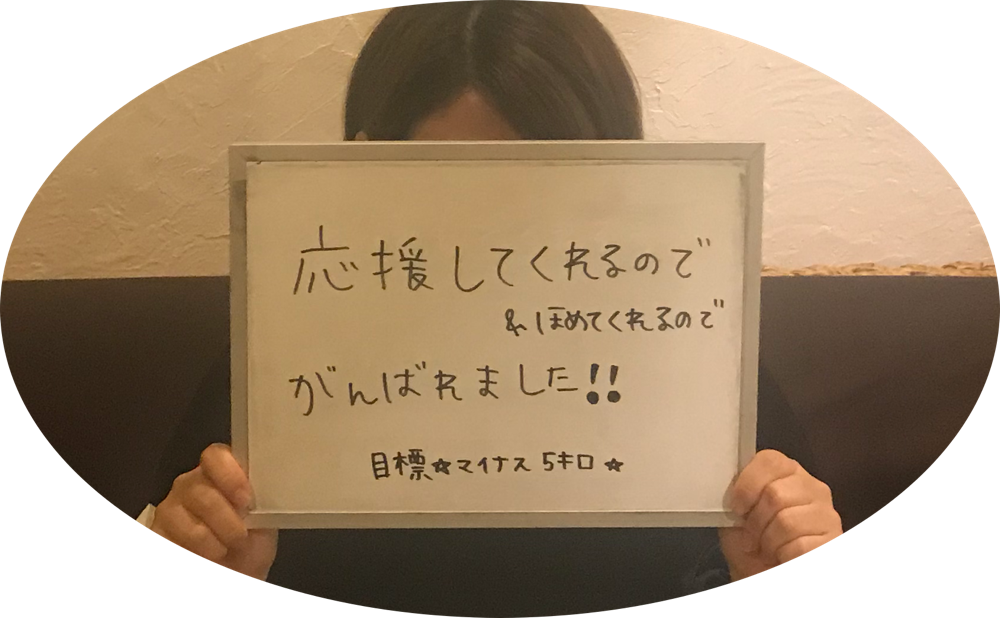 応援してくれるので
&ほめてくれるので
がんばれました!!
目標☆マイナス 5キロ☆